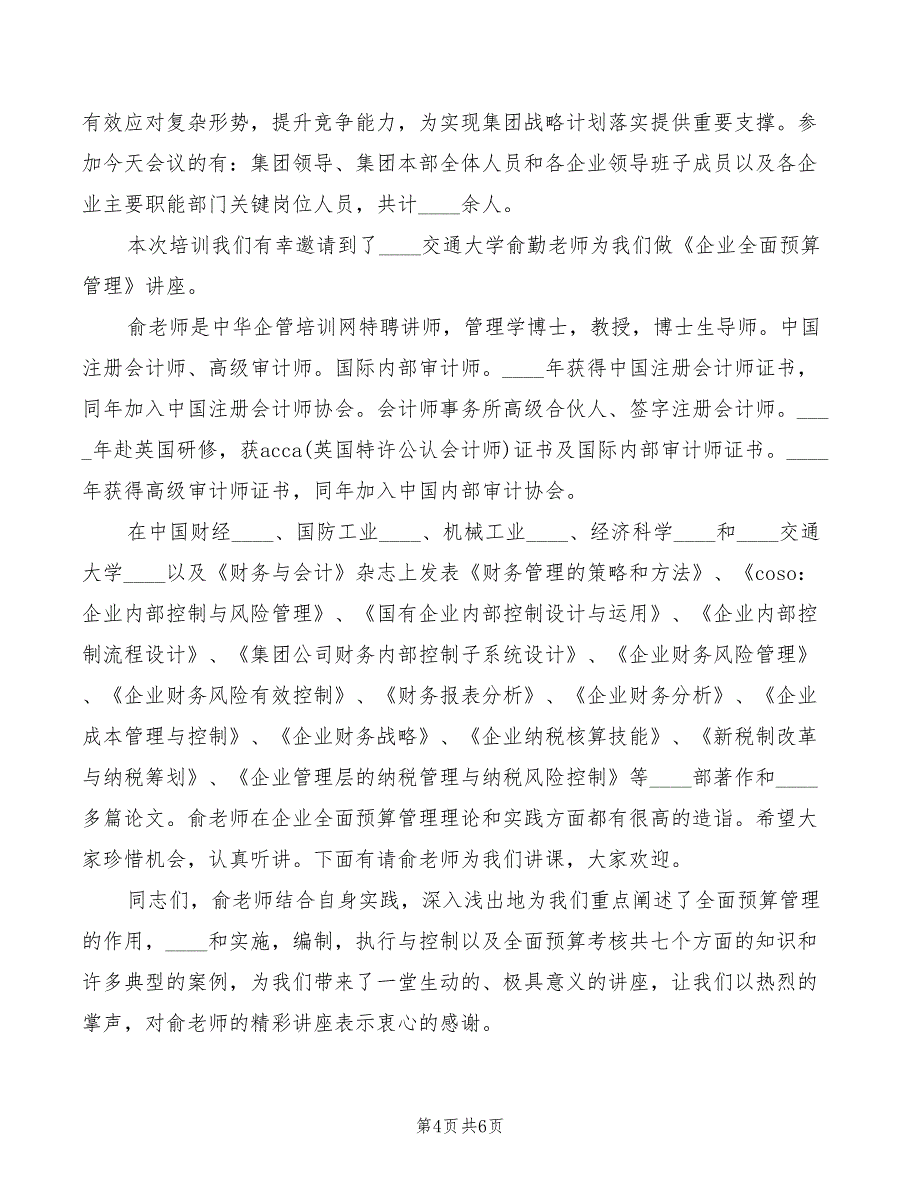 有效应对复杂形势，提升竞争能力，为实现集团战略计划落实提供重要支撑。参
加今天会议的有：集团领导、集团本部全体人员和各企业领导班子成员以及各企
业主要职能部门关键岗位人员，共计____余人。
本次培训我们有幸邀请到了____交通大学俞勤老师为我们做《企业全面预算
管理》讲座。
俞老师是中华企管培训网特聘讲师，管理学博士，教授，博士生导师。中国
注册会计师、高级审计师。国际内部审计师。____年获得中国注册会计师证书，
同年加入中国注册会计师协会。会计师事务所高级合伙人、签字注册会计师。___
_年赴英国研修，获acca(英国特许公认会计师)证书及国际内部审计师证书。____
年获得高级审计师证书，同年加入中国内部审计协会。
在中国财经____、国防工业____、机械工业____、经济科学____和____交通
大学____以及《财务与会计》杂志上发表《财务管理的策略和方法》、《coso：
企业内部控制与风险管理》、《国有企业内部控制设计与运用》、《企业内部控
制流程设计》、《集团公司财务内部控制子系统设计》、《企业财务风险管理》
、《企业财务风险有效控制》、《财务报表分析》、《企业财务分析》、《企业
成本管理与控制》、《企业财务战略》、《企业纳税核算技能》、《新税制改革
与纳税筹划》、《企业管理层的纳税管理与纳税风险控制》等____部著作和____
多篇论文。俞老师在企业全面预算管理理论和实践方面都有很高的造诣。希望大
家珍惜机会，认真听讲。下面有请俞老师为我们讲课，大家欢迎。
同志们，俞老师结合自身实践，深入浅出地为我们重点阐述了全面预算管理
的作用，____和实施，编制，执行与控制以及全面预算考核共七个方面的知识和
许多典型的案例，为我们带来了一堂生动的、极具意义的讲座，让我们以热烈的
掌声，对俞老师的精彩讲座表示衷心的感谢。
第4页 共6页